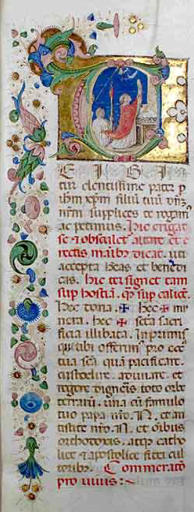 E I G I
tur clementissime pater p
ihm xpm filiū tuū dnm
nrm supplices te rogam
ac petimus. Hic erigat
se & obsculet altare et e
rectis manib dicat. uti
accepta habeas et benedi
cas. Hic ter signet tam
sup hostiā. q̄ sup calicē.
Hec dona. ✠ hec ✠ mu
nera. hec ✠ scta sacri
ficia illibata. Inprimis
que tibi offerim pro eccl
tua sca qua pacificare
custodire. adunare. et
regere digneris toto orbe
terrarū. una cū famulo
tuo papa nro N. et an
tistite nro N. et oibus
orthodoxis. atqz catho
lice & apostolice fidei cul
toribz. Commemoratio
pro uiuis: